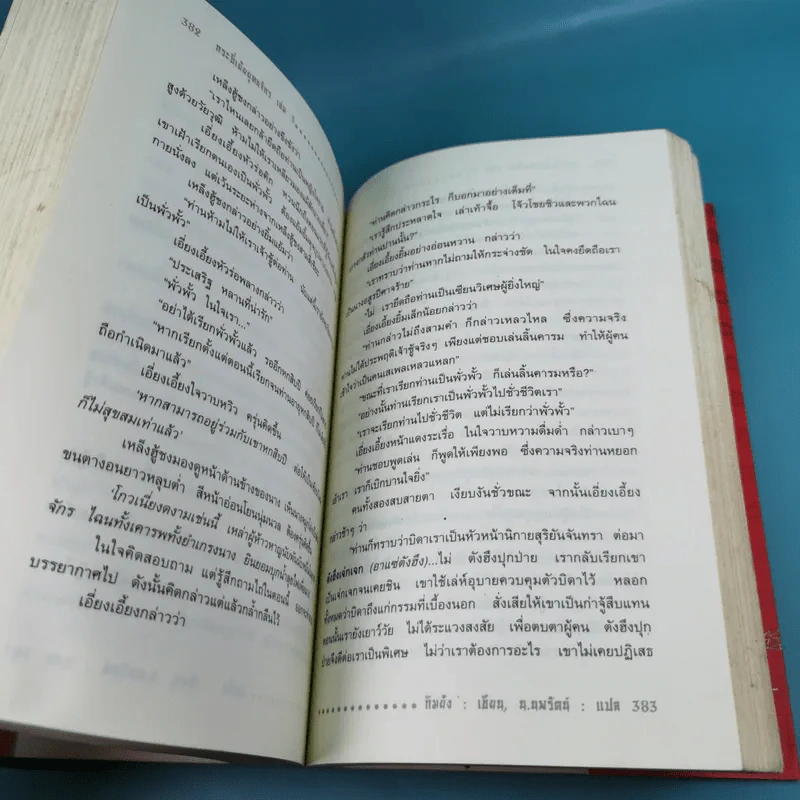 382 กระบี่เย้ยยุทธจักร เล่ม
เหล็งฮู้ชงกล่าวอย่างขึงขังว่า
"เราไหนเลยกล้ายึดถือท่านเป็น
สูงด้วยวัยวุฒิ ห้ามไม่ให้เรา
เอี่ยงเอี้ยงหัวร่อคิก
เขาเฝ้าเรียกตนเองเป็นพั่วพั้ว
กายนั่งลง แต่เว้นระยะห่างจากเหล็งฮู้ชง
เหล็งฮู้ชงกล่าวอย่างยิ้มแย้มว่า
"ท่านห้ามไม่ให้เราเจ้าชู้ต่อท่าน
เป็นพั่วพั้ว"
เอี่ยงเอี้ยงหัวร่อพลางกล่าวว่า
"ประเสริฐ หลานที่น่ารัก"
"พั่วพั้ว ในใจเรา..."
"อย่าได้เรียกพั่วพั้วแล้ว รออีกหกสิบปี
"หากเรียกตั้งแต่ตอนนี้เรียกจนท่านอายุหกสิบปี
ถือกำเนิดมาแล้ว"
เอี่ยงเอี้ยงใจวาบหวิว ครุ่นคิดขึ้น
'หากสามารถอยู่ร่วมกับเขาหกสิบปี
ก็ไม่สุขสมเท่าแล้ว'
เหล็งฮู้ชงมองดูหน้าด้านข้างของนาง
ขนตางอนยาวหลุบต่ำ สีหน้าอ่อนโยนนุ่มนวล
'โกวเนี้ยงดงามเช่นนี้ เหล่าผู้ห้าวหาญ
จักร ไฉนทั้งเคารพทั้งยำเกรงนาง ยินยอมบุกน้ำลุยไฟ
ในใจคิดสอบถาม แต่รู้สึกถามไถ่ในตอนนี้
บรรยากาศไป ดังนั้นคิดกล่าวแต่แล้วกล้ำกลืนไว้
เอี่ยงเอี้ยงกล่าวว่า
"ท่านคิดกล่าวกระไร ก็บอกมาอย่างเต็มที่"
"เรารู้สึกประหลาดใจ เล่าเท้าจื้อ โจ้วโชยชิวและพวกไฉน
ท่านปานนั้น?"
เอี่ยงเอี้ยงยิ้มอย่างอ่อนหวาน กล่าวว่า
"เราทราบว่าท่านหากไม่ถามให้กระจ่างชัด ในใจคงยึดถือเรา
เป็นนางอสูรปีศาจร้าย"
"ไม่ เรายึดถือท่านเป็นเซียนวิเศษผู้ยิ่งใหญ่"
เอี่ยงเอี้ยงยิ้มเล็กน้อยกล่าวว่า
"ท่านกล่าวไม่ถึงสามคำ ก็กล่าวเหลวไหล ซึ่งความจริง
ท่านไม่ได้ประพฤติเจ้าชู้จริงๆ เพียงแต่ชอบเล่นลิ้นคารม ทำให้ผู้คน
เข้าใจว่าเป็นคนเสเพลเหลวแหลก"
"ขณะที่เราเรียกท่านเป็นพั่วพั้ว ก็เล่นลิ้นคารมหรือ?"
"อย่างนั้นท่านเรียกเราเป็นพั่วพั้วไปชั่วชีวิตเรา"
"เราจะเรียกท่านไปชั่วชีวิต แต่ไม่เรียกว่าพั่วพั้ว"
เอี่ยงเอี้ยงหน้าแดงระเรื่อ ในใจวาบหวามดื่มด่ำ กล่าวเบาๆ
"ท่านชอบพูดเล่น ก็พูดให้เพียงพอ ซึ่งความจริงท่านหยอก
เย้าเรา เราก็เบิกบานใจยิ่ง"
คนทั้งสองสบสายตา เงียบงันชั่วขณะ จากนั้นเอี่ยงเอี้ยง
กล่าวช้าๆ ว่า
"ท่านก็ทราบว่าบิดาเราเป็นหัวหน้านิกายสุริยันจันทรา ต่อมา
ตังฮึงเจ่กเจก (อาแซ่ตังฮึง)...ไม่ ตังฮึงปุกป่าย เรากลับเรียกเขา
เป็นเจ่กเจกจนเคยชิน เขาใช้เล่ห์อุบายควบคุมตัวบิดาไว้ หลอก
ทั้งหมดว่าบิดาถึงแก่กรรมที่เบื้องนอก สั่งเสียให้เขาเป็นก่าจู้สืบแทน
ตอนนั้นเรายังเยาว์วัย ไม่ได้ระแวงสงสัย เพื่อตบตาผู้คน ตังฮึงปุก
ป่ายจึงดีต่อเราเป็นพิเศษ ไม่ว่าเราต้องการอะไร เขาไม่เคยปฏิเสธ
กิมย้ง : เขียน, น.นพรัตน์ : แปล 383